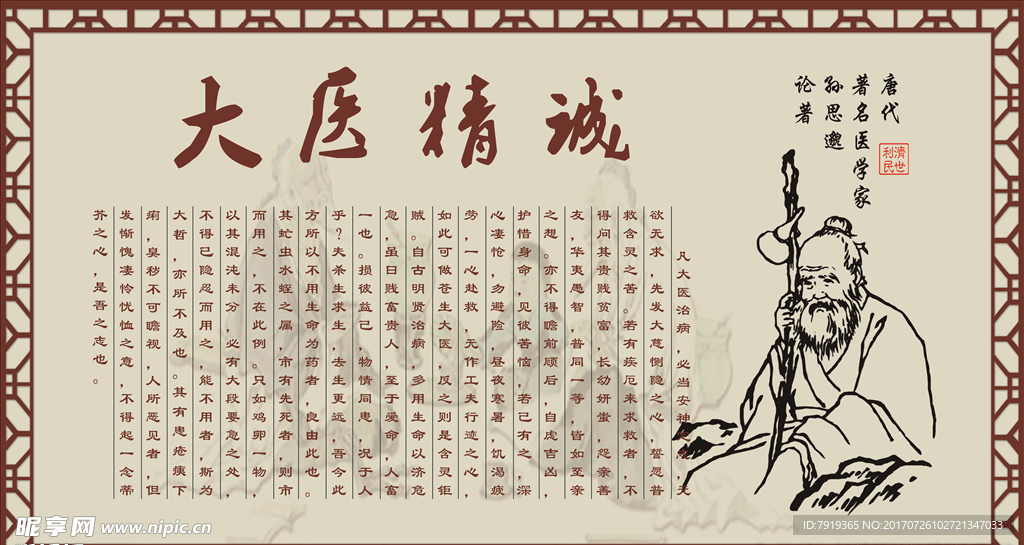 大医精诚
唐代
著名医学家
孙思邈
论著
濟世
利民
凡大医治病，必当安神定志，无
欲无求，先发大慈恻隐之心，誓愿普
救含灵之苦。若有疾厄来求救者，不
得问其贵贱贫富，长幼妍蚩，怨亲善
友，华夷愚智，普同一等，皆如至亲
之想。亦不得瞻前顾后，自虑吉凶，
护惜身命，见彼苦恼，若己有之，深
心凄怆，勿避险，昼夜寒暑，饥渴疲
劳，一心赴救，无作工夫行迹之心，
如此可做苍生大医，反之则是含灵钜
贼。自古明贤治病，多用生命以济危
急，虽曰贱富贵人，至于爱命，人富
一也。损彼益己，物情同患，况于人
乎？夫杀生求生，去生更远，吾今此
方所以不用生命为药者，良由此也。
其虻虫水蛭之属，市有先死者，则市
而用之，不在此例。只如鸡卵一物，
以其混沌未分，必有大段要急之处，
不得已隐忍而用之，能不用者，斯为
大哲，亦所不及也。其有患疮痍下
痢，臭秽不可瞻视，人所恶见者，但
发惭愧凄怜忧恤之意，不得起一念蒂
芥之心，是吾之志也。
昵享网 www.nipic.cn
ID:7919365 NO:20170726102721347033